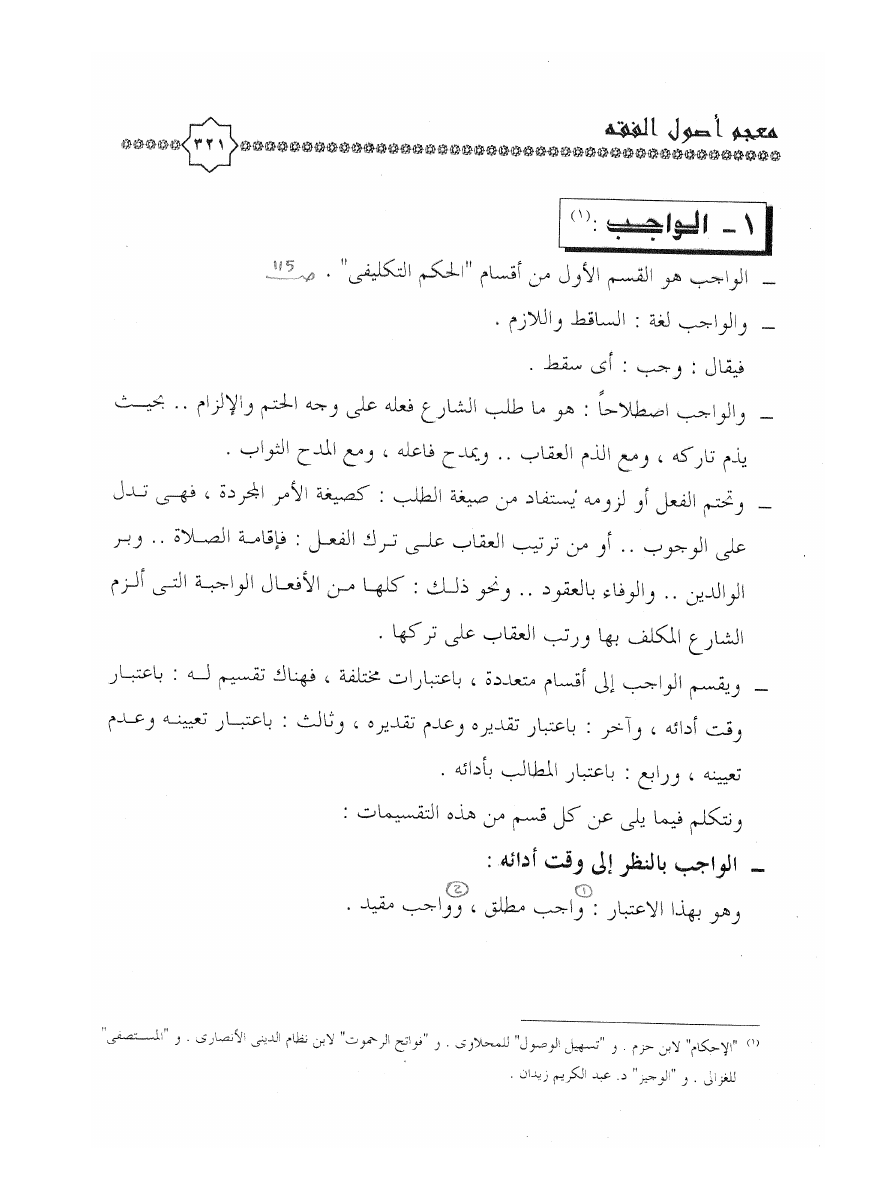 معجم أصول الفقه
٣٢١
١- الواجب :(١)
ـ الواجب هو القسم الأول من أقسام "الحكم التكليفى" . صـ 115
ـ والواجب لغة : الساقط واللازم .
فيقال : وجب : أى سقط .
ـ والواجب اصطلاحاً : هو ما طلب الشارع فعله على وجه الحتم والإلزام .. بحيث
يذم تاركه ، ومع الذم العقاب .. ويمدح فاعله ، ومع المدح الثواب .
ـ وتحتم الفعل أو لزومه يُستفاد من صيغة الطلب : كصيغة الأمر المجردة ، فهى تدل
على الوجوب .. أو من ترتيب العقاب على ترك الفعل : فإقامة الصلاة .. وبر
الوالدين .. والوفاء بالعقود .. ونحو ذلك : كلها من الأفعال الواجبة التى ألزم
الشارع المكلف بها ورتب العقاب على تركها .
ـ ويقسم الواجب إلى أقسام متعددة ، باعتبارات مختلفة ، فهناك تقسيم له : باعتبار
وقت أدائه ، وآخر : باعتبار تقديره وعدم تقديره ، وثالث : باعتبار تعيينه وعدم
تعيينه ، ورابع : باعتبار المطالب بأدائه .
ونتكلم فيما يلى عن كل قسم من هذه التقسيمات :
ـ الواجب بالنظر إلى وقت أدائه :
1 2
وهو بهذا الاعتبار : واجب مطلق ، وواجب مقيد .
(١) "الإحكام" لابن حزم . و "تسهيل الوصول" للمحلاوى . و "فواتح الرحموت" لابن نظام الدينى الأنصارى . و "المستصفى"
للغزالى . و "الوجيز" د. عبد الكريم زيدان .